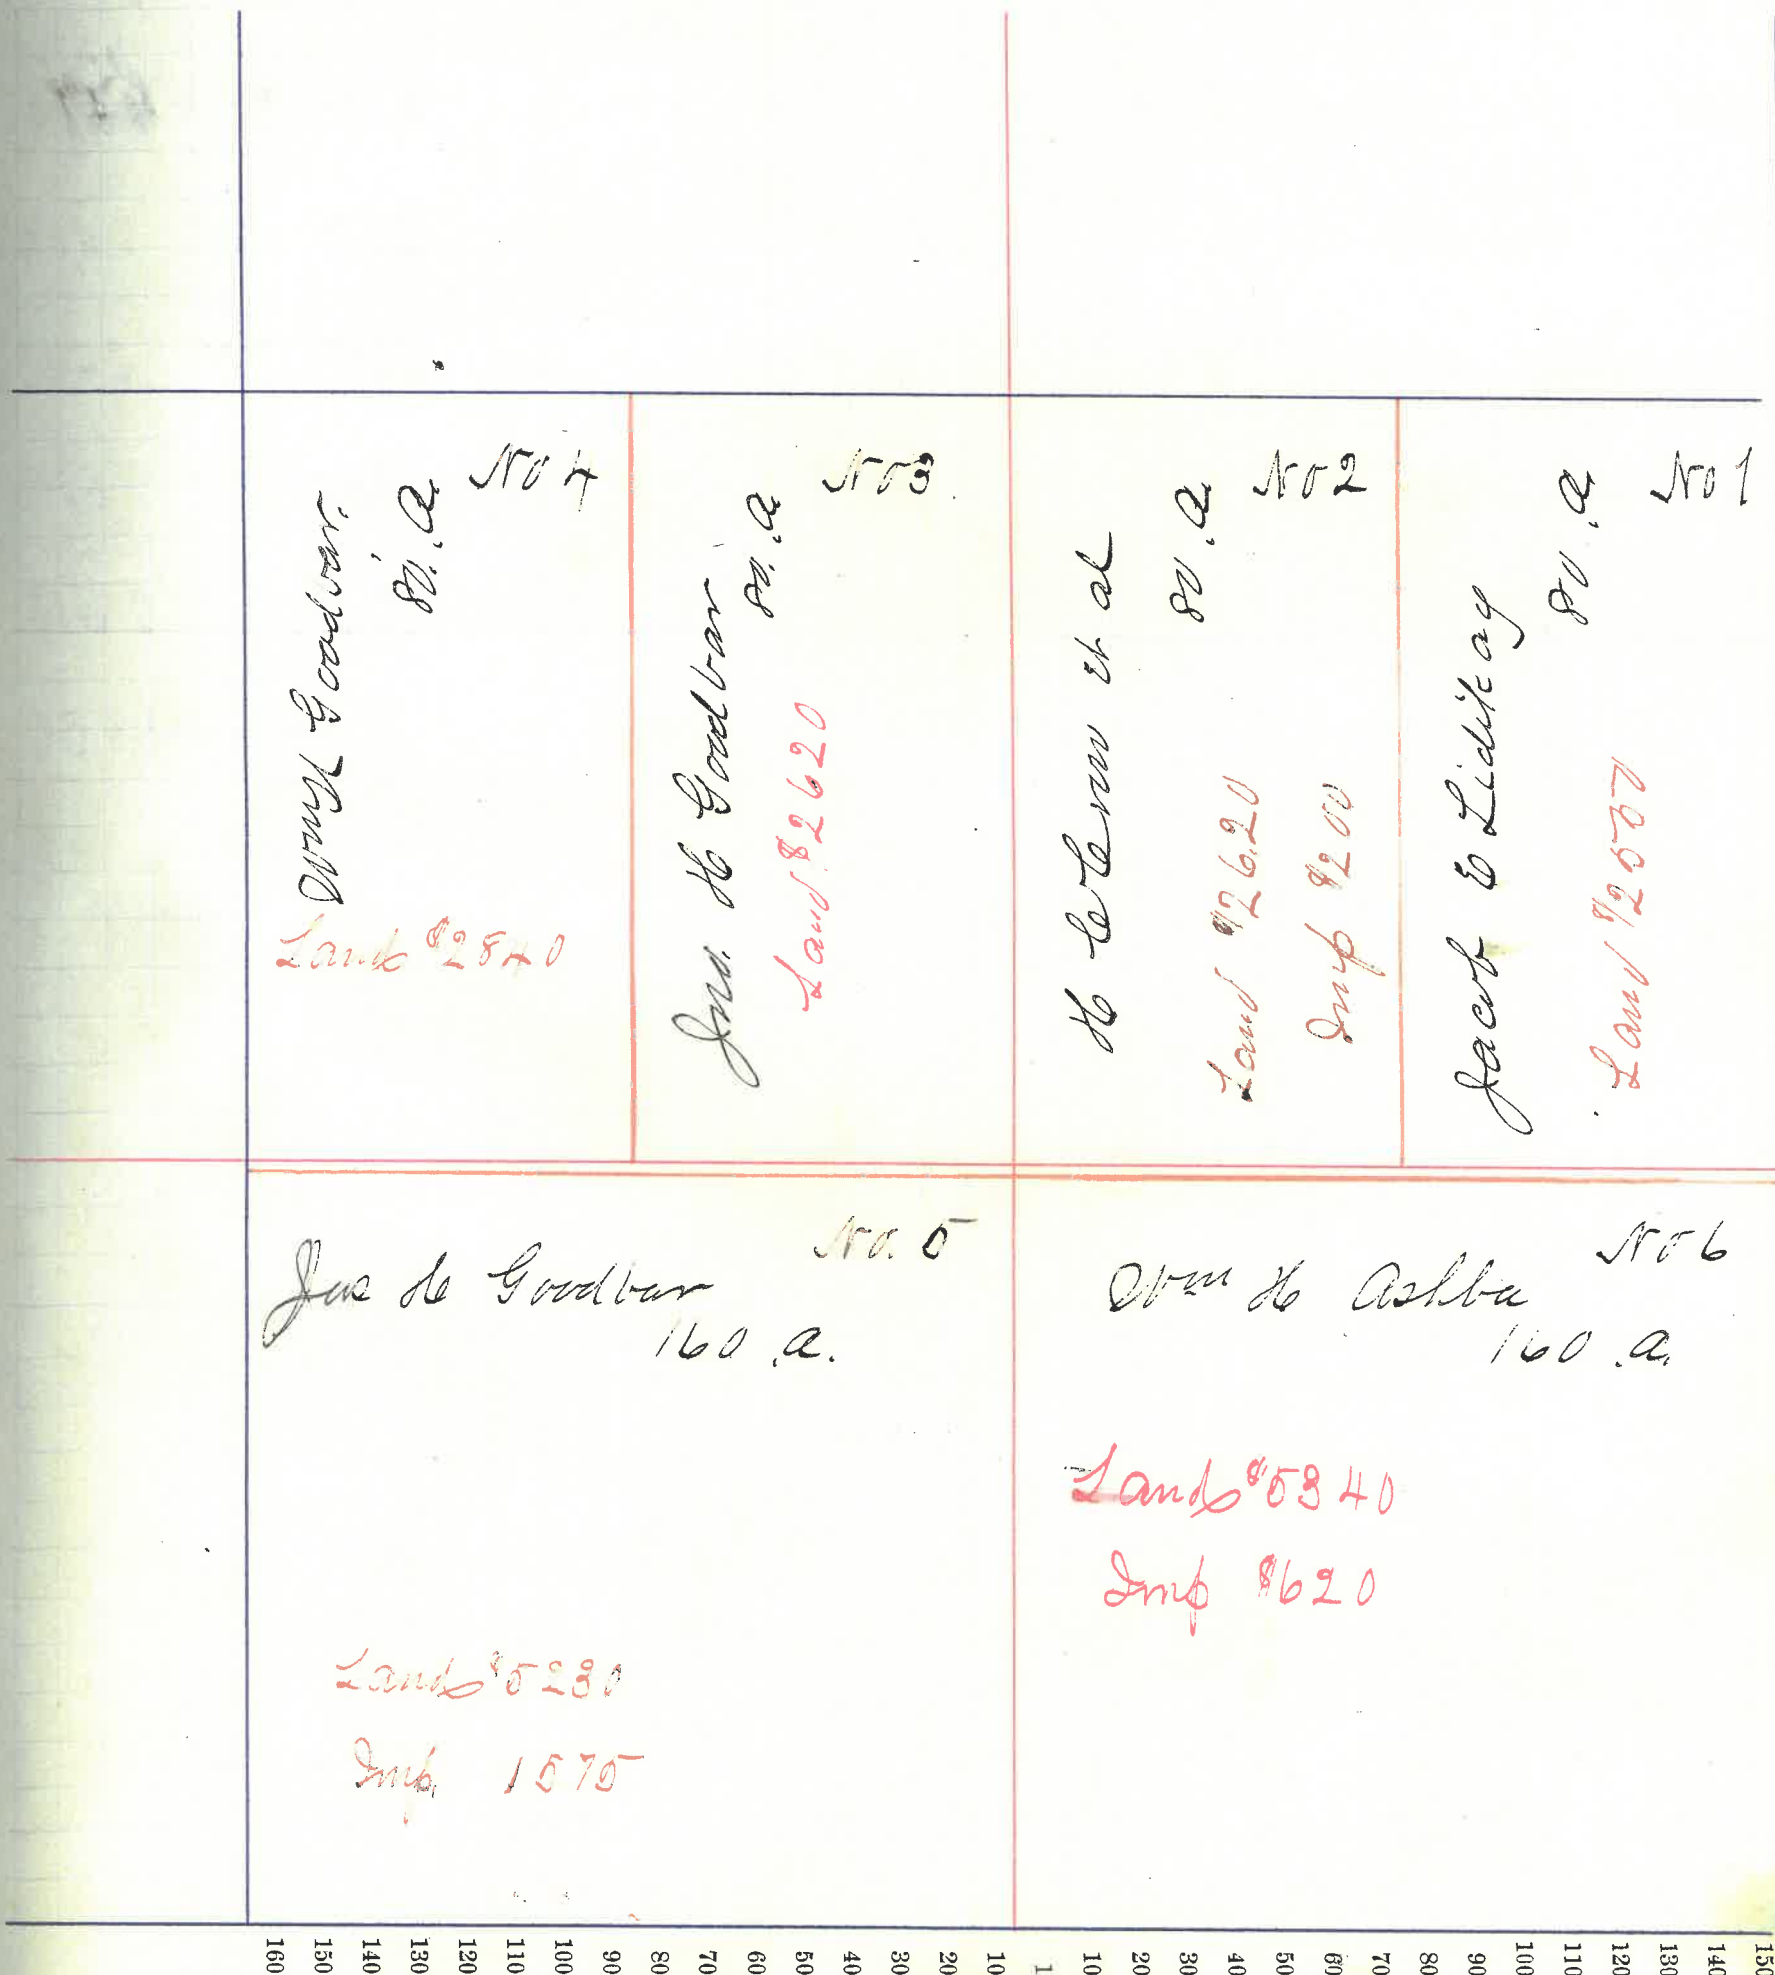 No 4
Goodbar.
80. a.
Land $2840
No 3
Jno. H Goodbar
80. a
Land $2620
No 2
et al
80. a
Land $2620
Imp $200
No 1
Jacob E
80. a
Land $2550
No. 5
H Goodbar
160 .a.
Land $5230
Imp. 1575
No 6
Wm H Ashba
160 .a.
Land $5340
Imp $620
160 150 140 130 120 110 100 90 80 70 60 50 40 30 20 10 1 10 20 30 40 50 60 70 80 90 100 110 120 130 140 150